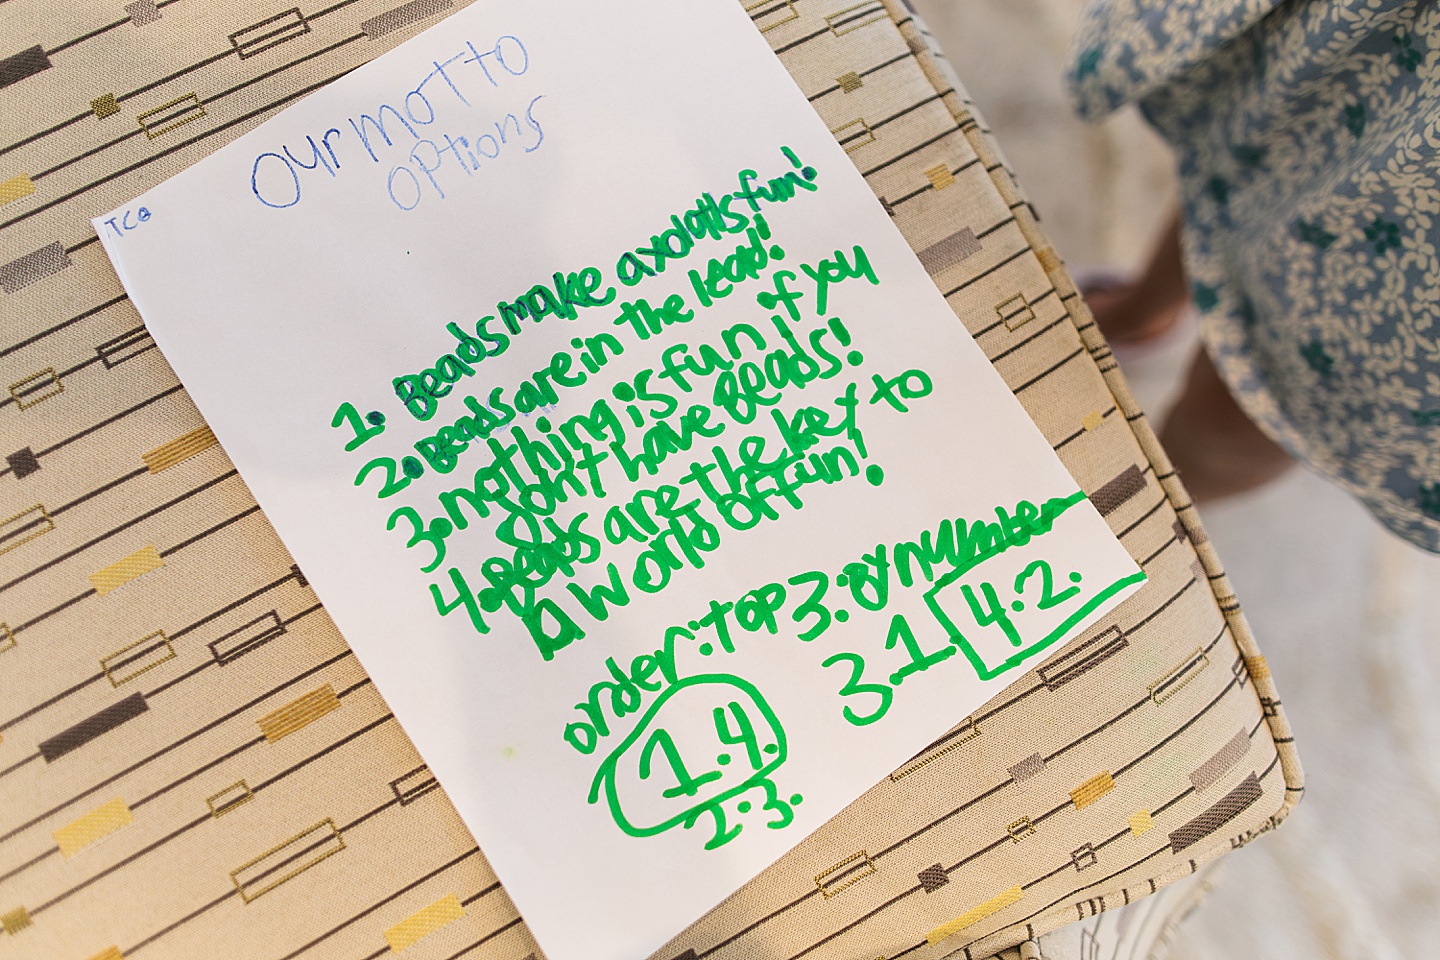 Our motto
options
TCQ
1. Beads make axolotls fun!
2. Beads are in the lead!
3. nothing is fun if you
don't have Beads!
4. Beads are the key to
a world of fun!
order: top 3: By number
1.4.
2.3.
3.1. 4.2.